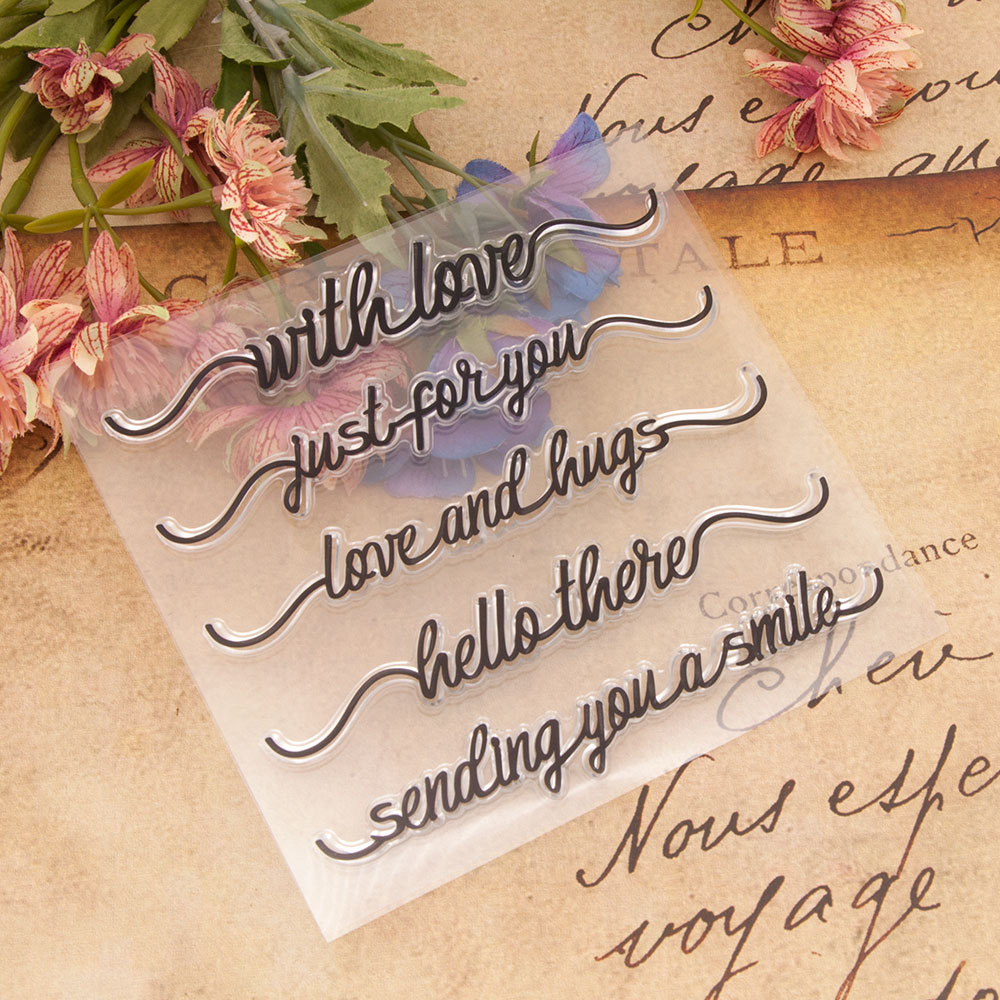 Nous
voyage
TALE
with love
just for you
love and hugs
hello there
sending you a smile
Correspondance
Nous
voyage